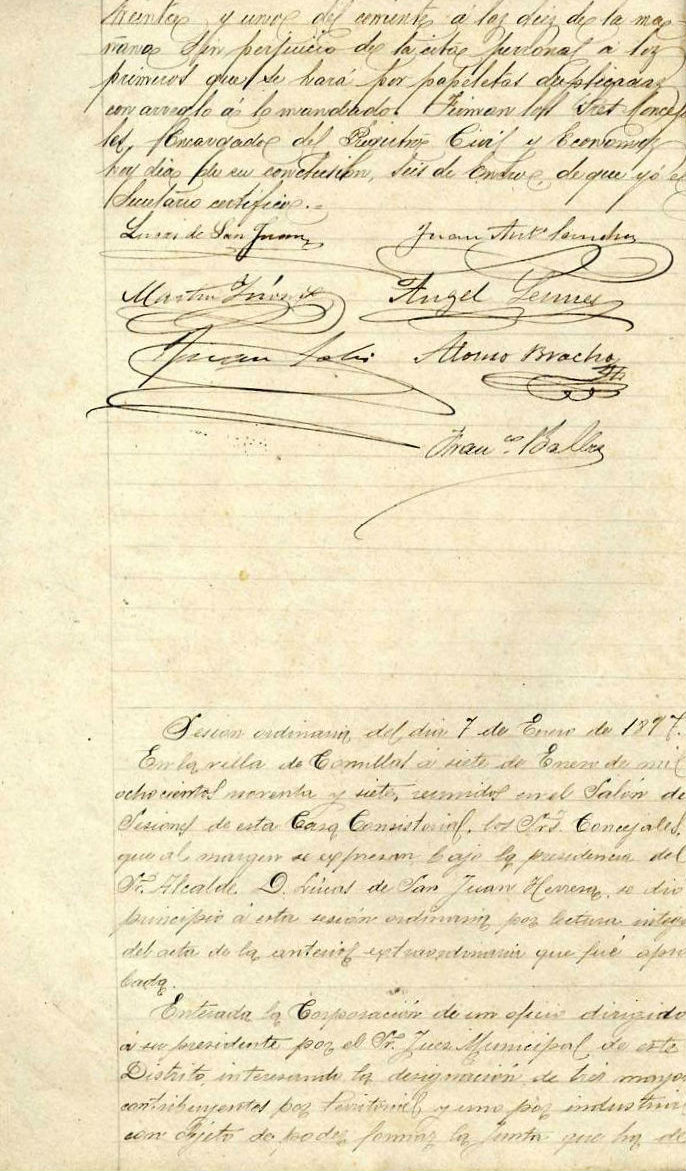 treinta y uno del corriente á las diez de la ma-
ñana sin perjuicio de la cita personal á los
primeros que se hará por papeletas duplicadas
con arreglo á lo mandado. Firman los Sres Conceja
les, Encargado del Registro Civil y Economo
hoy dia de su conclusión, seis de Enero, de que yó el
Secretario certifico.-
Lucas de San Juan Juan Antº Sanchez
Martin Angel
Juan Alonso Bracho
Franco Balbas
Sesion ordinaria del dia 7 de Enero de 1897.
En la villa de Comillas á siete de Enero de mil
ochocientos noventa y siete, reunidos en el Salón de
Sesiones de esta Casa Consistorial, los Srs. Concejales,
que al margen se expresan, bajo la presidencia del
Sr. Alcalde D. Lucas de San Juan Herrera, se dio
principio á esta sesión ordinaria por lectura integra
del acta de la anterior extraordinaria que fué apro
bada.
Enterada la Corporación de un oficio dirigido
á su presidente por el Sr. Juez Municipal de este
Distrito, interesando la designación de tres mayores
contribuyentes por territorial y uno por industrial
con objeto de poder formar la Junta que ha de